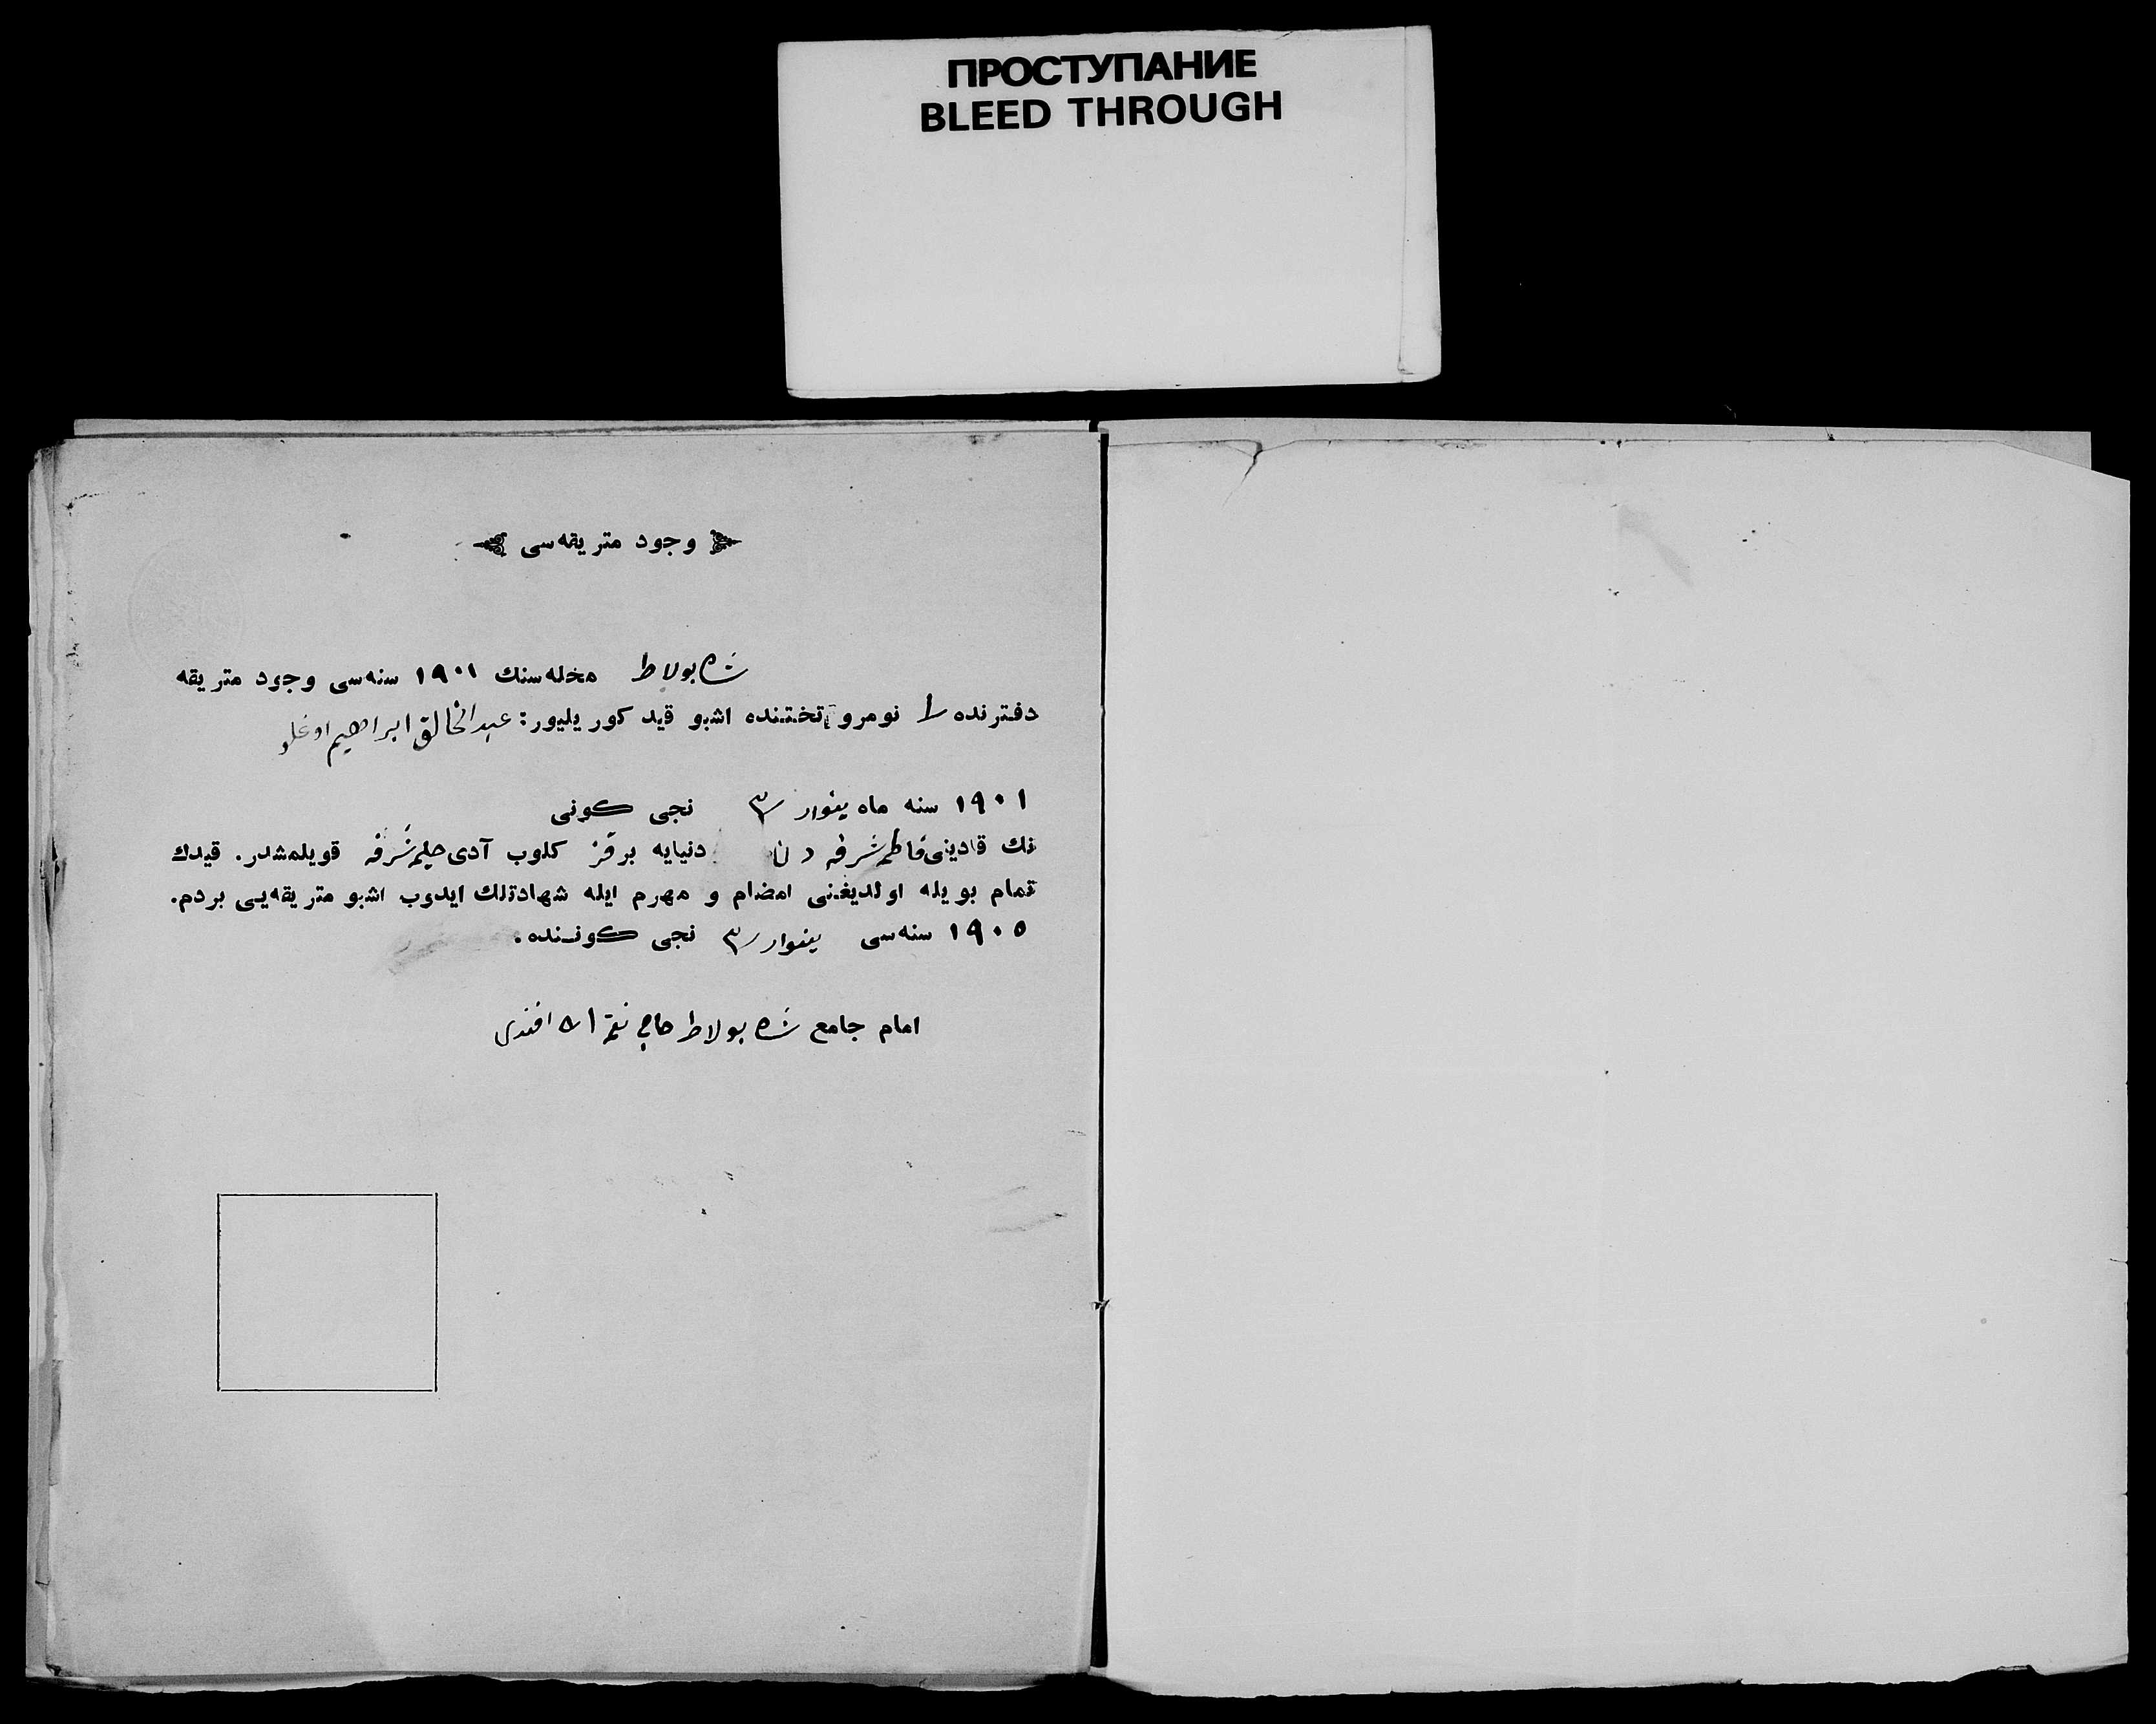 ПРОСТУПАНИЕ
BLEED THROUGH
وجود متريقه‌سی
شاه بولاط محله‌سنك ١٩٠١ سنه‌سی وجود متريقه
دفترنده ١ نومرو تختنده اشبو قيد كوريليور: عبدالخالق ابراهيم اوغلو
١٩٠١ سنه ماه ينوار ٣ نجی كونی
نك قادينی فاطمه شرفه دن دنيايه بر قز كلوب آدی حليمه شرفه قويلمشدر. قيدك
تمام بويله اولديغنی امضام و مهرم ايله شهادتلك ايدوب اشبو متريقه‌يی بردم.
١٩٠٥ سنه‌سی ينوار ٣ نجی كوننده.
امام جامع شاه بولاط حاجی نعمة الله افندی